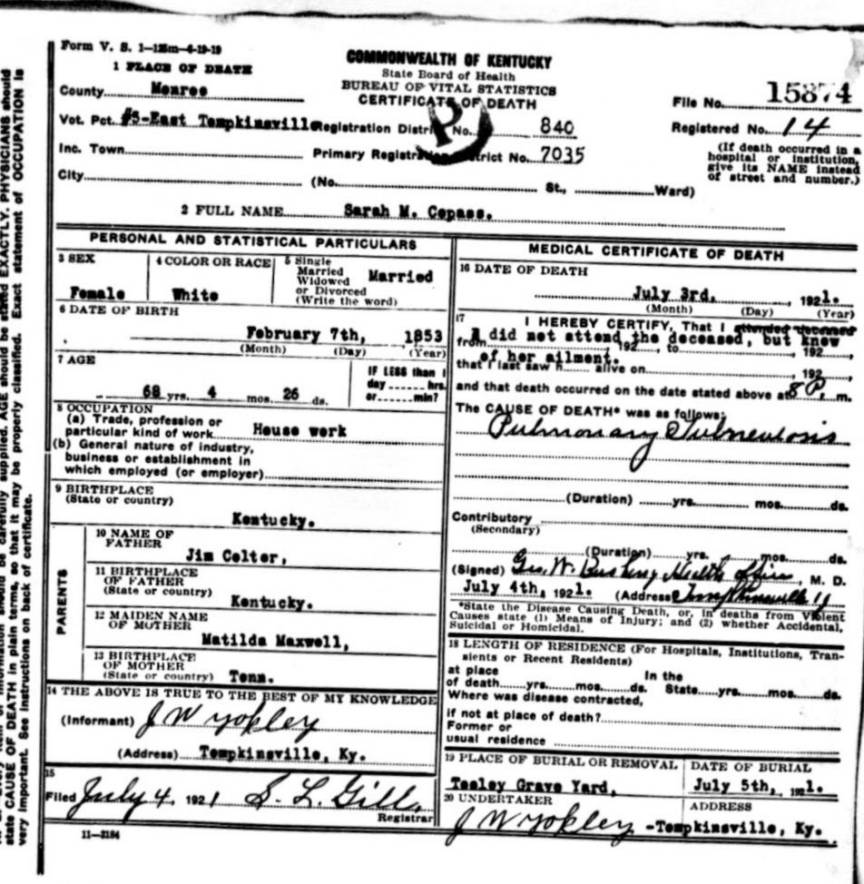 Form V. S. 1-125m-4-19-19
COMMONWEALTH OF KENTUCKY
State Board of Health
BUREAU OF VITAL STATISTICS
CERTIFICATE OF DEATH
1 PLACE OF DEATH
County Monroe
Vot. Pct. #5-East Tompkinsville Registration District No. 840
Inc. Town Primary Registration District No. 7035
City (No. St., Ward)
File No. 15874
Registered No. 14
(If death occurred in a
hospital or institution,
give its NAME instead
of street and number.)
2 FULL NAME Sarah M. Copass.
PERSONAL AND STATISTICAL PARTICULARS
3 SEX
Female
4 COLOR OR RACE
White
5 Single
Married
Widowed
or Divorced
(Write the word)
Married
6 DATE OF BIRTH
February 7th, 1853
(Month) (Day) (Year)
7 AGE
68 yrs. 4 mos. 26 ds.
IF LESS than 1
day hrs.
or min?
8 OCCUPATION
(a) Trade, profession or
particular kind of work House work
(b) General nature of industry,
business or establishment in
which employed (or employer)
9 BIRTHPLACE
(State or country)
Kentucky.
PARENTS
10 NAME OF
FATHER
Jim Colter,
11 BIRTHPLACE
OF FATHER
(State or country)
Kentucky.
12 MAIDEN NAME
OF MOTHER
Matilda Maxwell,
13 BIRTHPLACE
OF MOTHER
(State or country) Tenn.
14 THE ABOVE IS TRUE TO THE BEST OF MY KNOWLEDGE
(Informant) J W Yokley
(Address) Tompkinsville, Ky.
15
Filed July 4, 1921 S. L. Gill
Registrar
11-3184
MEDICAL CERTIFICATE OF DEATH
16 DATE OF DEATH
July 3rd, 1921.
(Month) (Day) (Year)
17 I HEREBY CERTIFY, That I attended deceased
I did not attend the deceased, but knew
from 192 , to 192 ,
of her ailment.
that I last saw h alive on 192 ,
and that death occurred on the date stated above at 8 P. m.
The CAUSE OF DEATH* was as follows:
Pulmonary Tuberculosis
(Duration) yrs. mos. ds.
Contributory
(Secondary)
(Duration) yrs. mos. ds.
(Signed) Geo. W. Bushong Health Officer, M. D.
July 4th, 1921. (Address Tompkinsville Ky
*State the Disease Causing Death, or, in deaths from Violent
Causes state (1) Means of Injury; and (2) whether Accidental,
Suicidal or Homicidal.
18 LENGTH OF RESIDENCE (For Hospitals, Institutions, Tran-
sients or Recent Residents)
at place In the
of death yrs. mos. ds. State yrs. mos. ds.
Where was disease contracted,
if not at place of death?
Former or
usual residence
19 PLACE OF BURIAL OR REMOVAL
Teeley Grave Yard,
DATE OF BURIAL
July 5th, 1921.
20 UNDERTAKER
J W Yokley
ADDRESS
-Tompkinsville, Ky.
carefully supplied. AGE should be stated EXACTLY. PHYSICIANS should
state CAUSE OF DEATH in plain terms, so that it may be properly classified. Exact statement of OCCUPATION is
very important. See instructions on back of certificate.